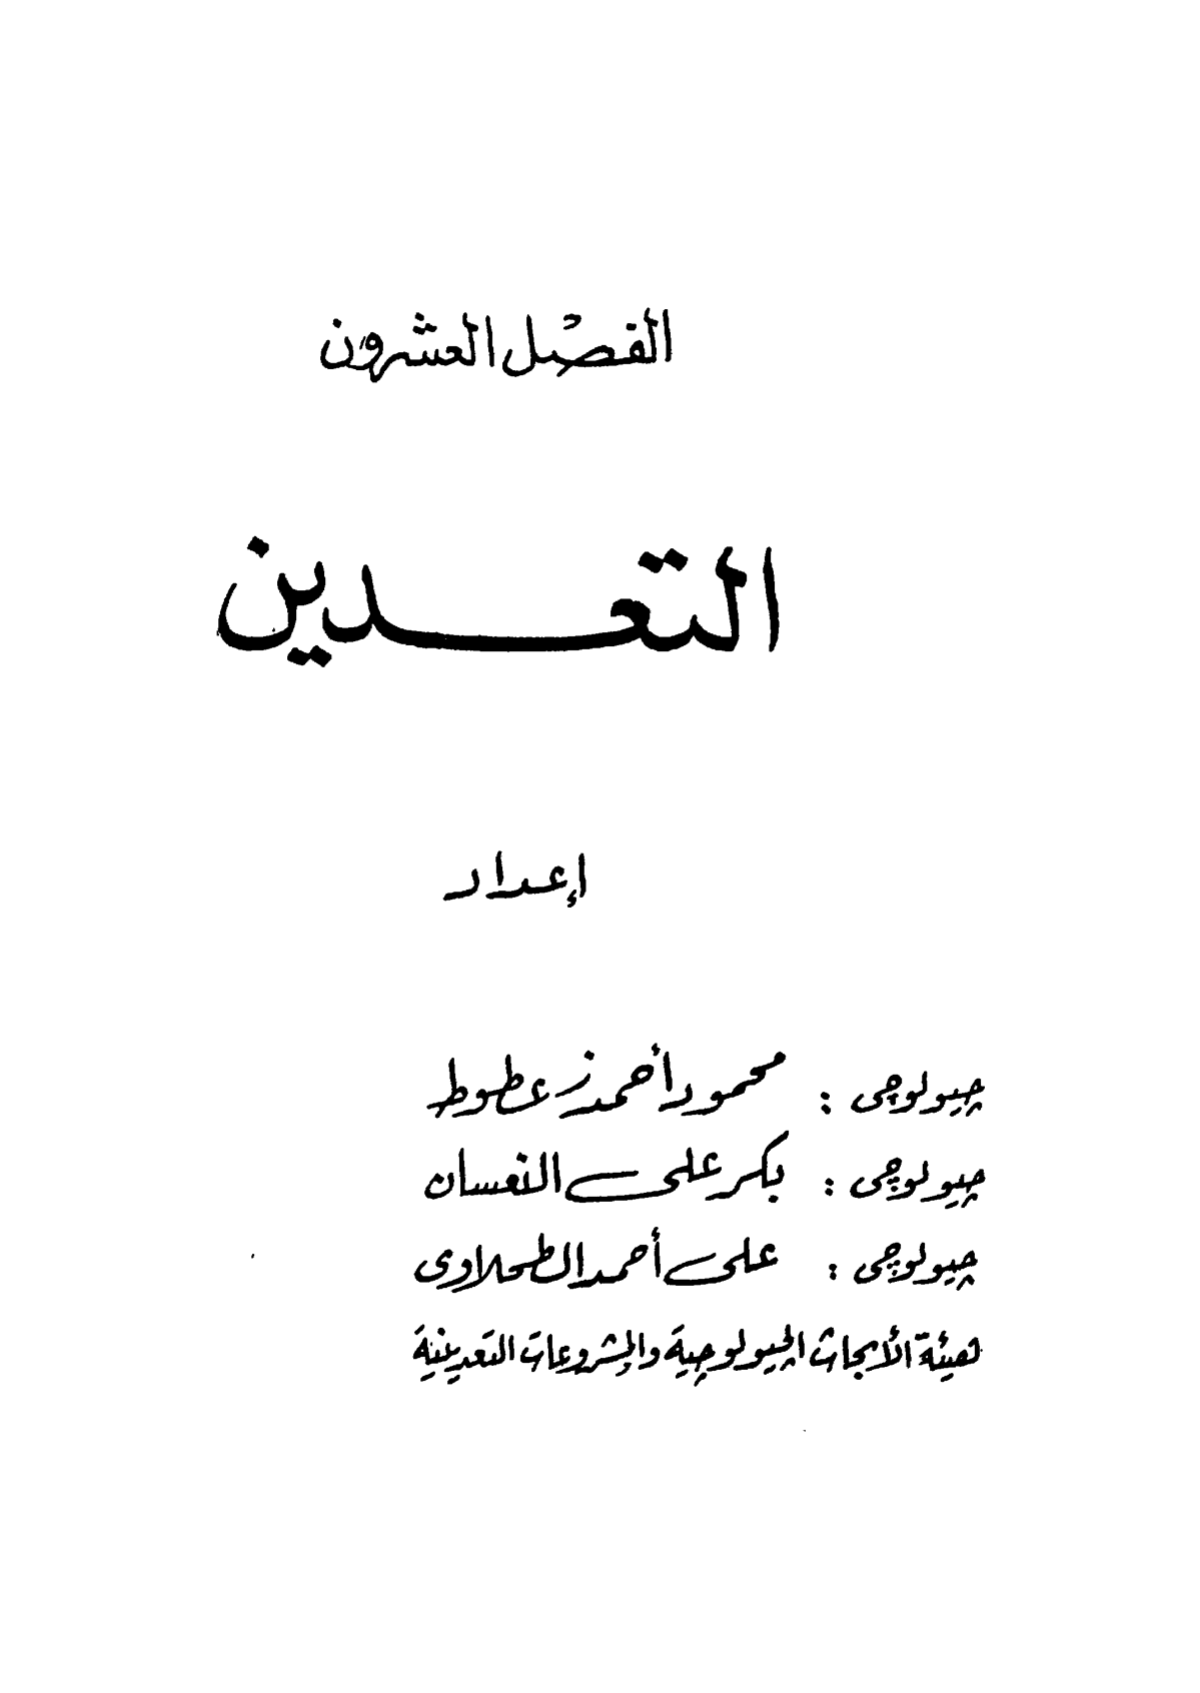 الفصل العشرون
التعدين
إعداد
چيولوچى : محمود أحمد زعطوط
چيولوچى : بكر على النعسان
چيولوچى : على أحمد الطحلاوى
هيئة الأبحاث الجيولوجية والمشروعات التعدينية